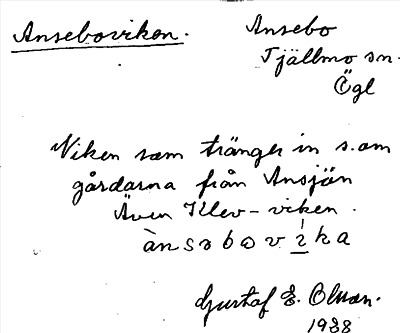 Anseboviken.
Ansebo
Tjällmo sn.
Ögl
Viken som tränger in s. om
gårdarna från Ansjön
Även Klev-viken.
ànsəbωvíka
Gustaf E. Olsson.
1938